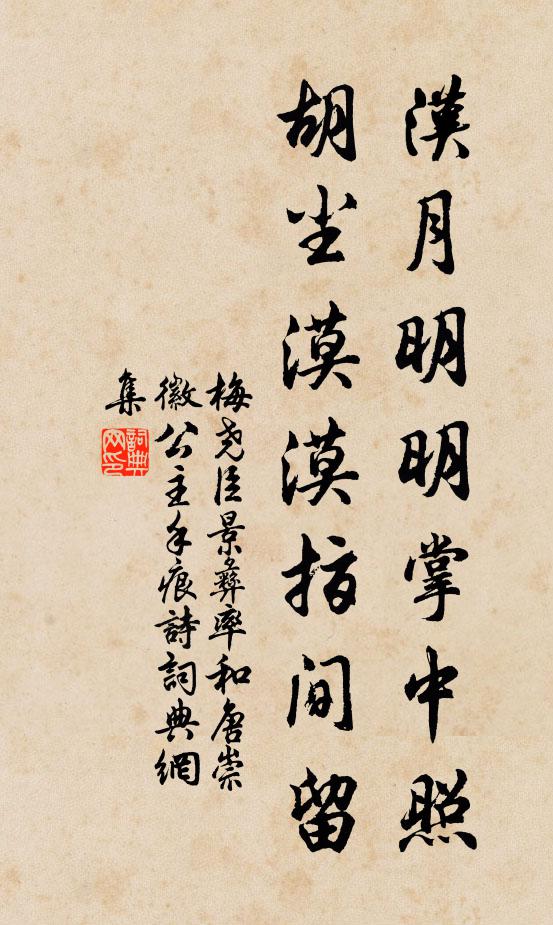 漢月明明掌中照
胡尘漠漠指间留
梅尧臣景彝率和唐崇
徽公主手痕詩詞典網
集
詞典網印